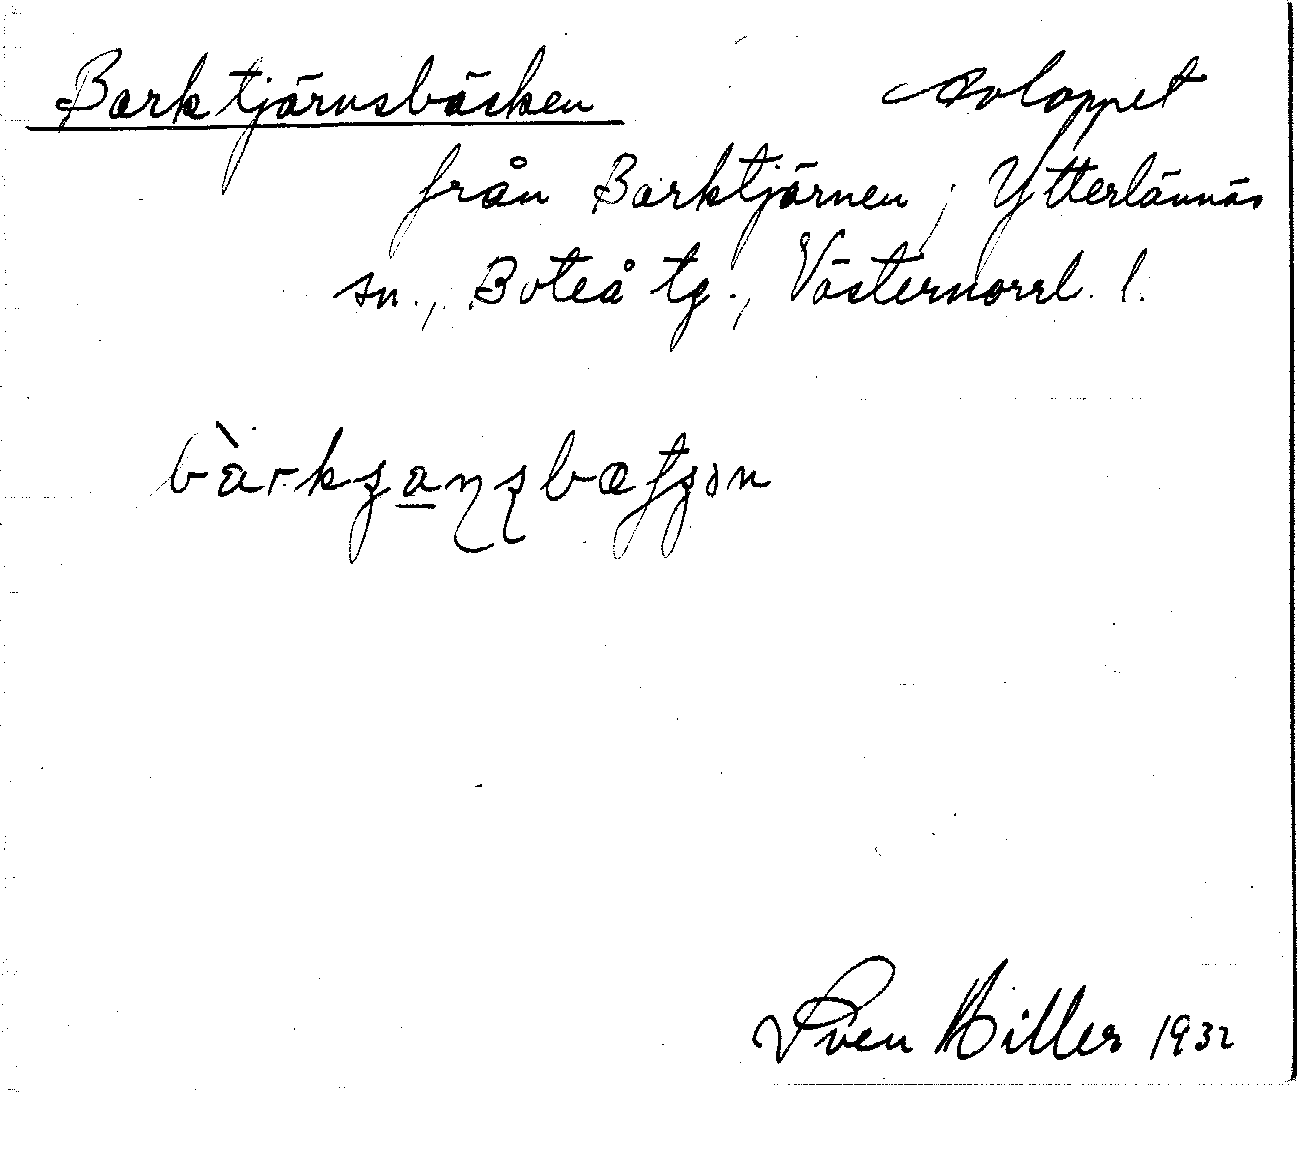 Barktjärnsbäcken avloppet
från Barktjärnen, Ytterlännäs
sn., Boteå tg., Västernorrl. l.
Sven Hiller 1932